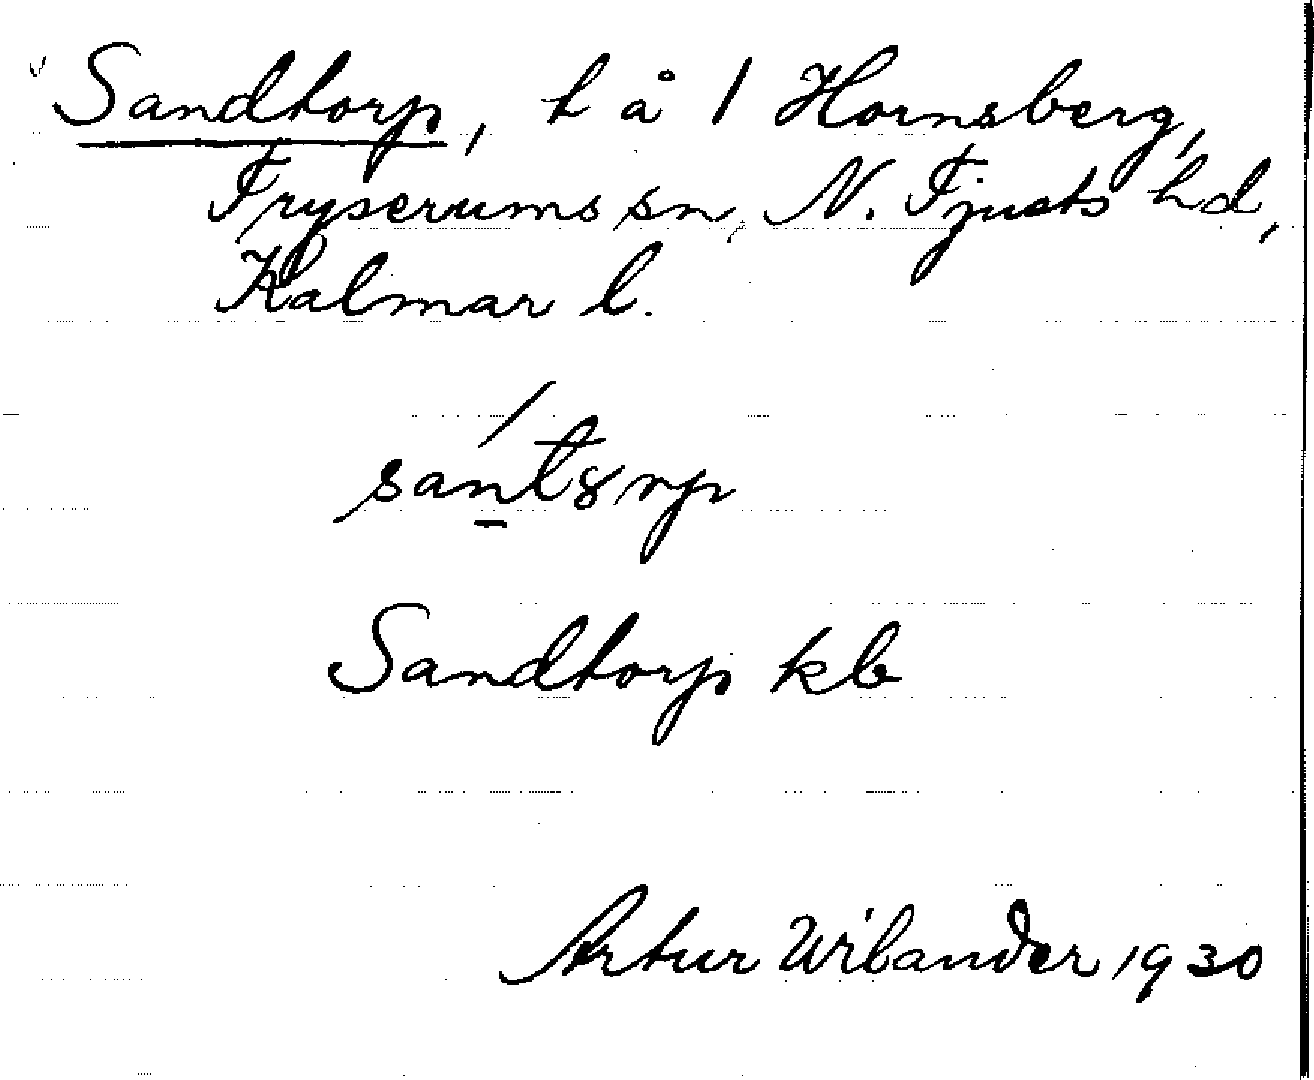 Sandtorp, t å 1 Hornsberg,
Tryserums sn, N. Tjusts hd,
Kalmar l.
santȣrp
Sandtorp kb
Artur Wilander 1930